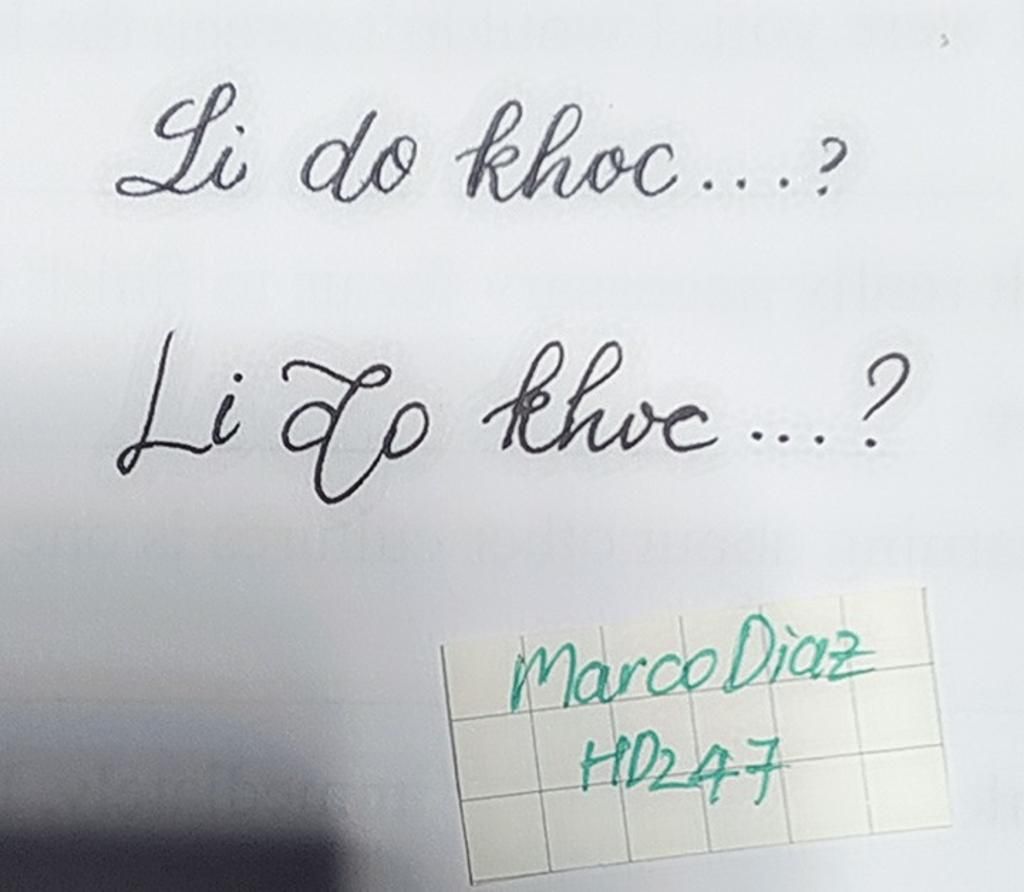 Li do khoc...?
Li do khoc...?
Marco Diaz
HD247